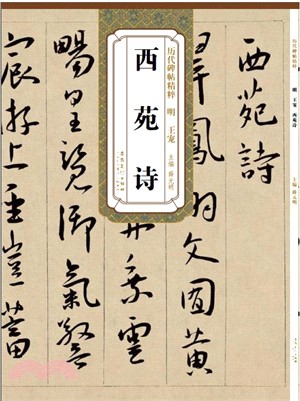 历代碑帖精粹 明 王宠
西苑诗
主编 薛元明
西苑詩
鳳羽文囿黄
乘靈
暢皇覽御氣
宸游上
历代碑帖精粹
明 王宠 西苑诗
主编 薛元明